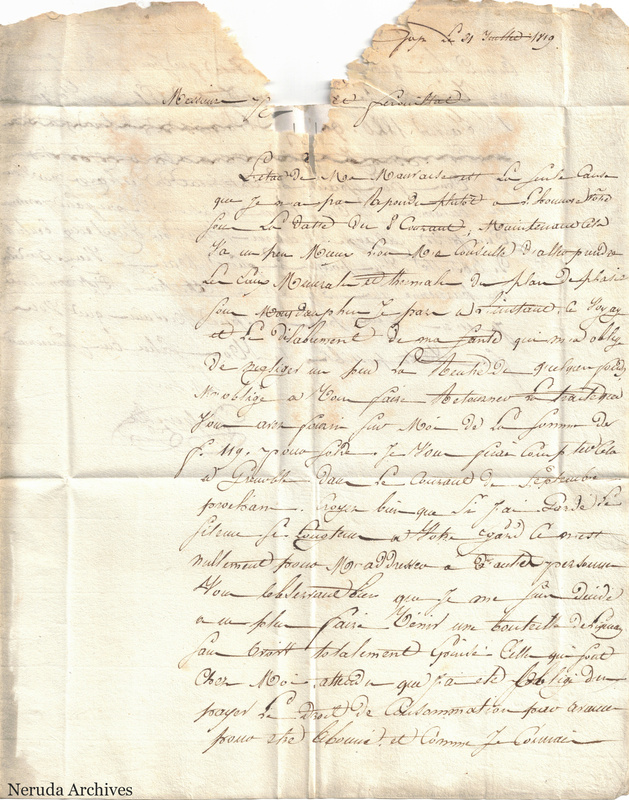 Gap Le 21 Juillet 1819.
Messieurs et
L'etat de Ma Mauvaise est La seule Cause
que Je n'a pas Repondu plutôt a L'honneur Vôtre
sous La datte du 8 Courant, Maintenant Cela
Va un peu Mieux L'on Me Conseille d'aller prendre
Les Eaux Minerale et thermale du plan de phasi
sous Montdauphin Je pars a L'instant. Ce Voyage
et Le de ma Santé qui m'a obligé
De negliger un peu La Rentré de quelques fonds,
M'oblige a Vous faire Retourner La traite que
Vous avez fourni sur Moi de La Somme de
f. 119. pour solde. Je Vous ferai Compter Cela
a Grenoble dans Le Courant de Septembre
prochain. Croyez bien que Si J'ai Gardé Le
silence si Longtems a Votre égard Ce n'est
nullement pour M'addresser a D'autre personne
Vous observant bien que Je me suis décidé
a ne plus faire Venir une bouteille de Liqueur
sans avoir totalement Epuisé Celle qui sont
Chez Moi. attendu que J'ai eté obligé de
payer Le Droit de Consommation par avance
pour etre abonné. et Comme Je Connais
Neruda Archives